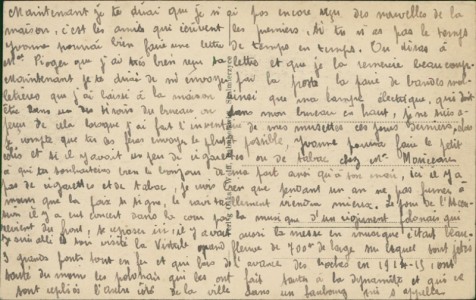 Maintenant je te dirai que je n'ai pas encore reçu des nouvelles de la
maison, c'est les amis qui écrivent les premiers. Si tu n'as pas le temps
Yvonne pourrait bien faire une lettre de temps en temps. Tu diras à
Mme que j'ai très bien reçu sa lettre et que je la remercie beaucoup.
Maintenant je te dirai de m'envoyer par la poste la paire de bandes mol-
letières que j'ai laissé à la maison ainsi que ma lampe électrique, qui doit
être dans un des tiroirs du bureau ou dans mon bureau en haut, je me suis a-
perçu de cela lorsque j'ai fait l'inventaire de mes musettes ces jours derniers, alors
je compte que tu as plus possible, Yvonne pourra faire le petit
colis et si il y avait un peu de cigarettes ou de tabac chez Mr
à qui tu souhaiteras bien le bonjour de ma part ainsi qu'à ici il y a
pas de cigarettes et de tabac, je crois bien que pendant un an ne pas fumer à
moins que la paix se signe, le ravitaillement viendra mieux. Le jour de l'Ascen-
sion il y a eut concert dans la cour par la musique d'un régiment polonais qui
revient du front, se reposer ici, il y avait aussi la messe en musique c'était beau.
Je suis allé voir visité la Vistule grand fleuve de 700m de large sur lequel sont jetés
3 grands ponts tout en fer et qui lors de l'avance des boches en 1914-15 ont
sauté du moins les polonais qui les ont fait sauter à la dynamite et qui se
sont repliés l'autre côté de la ville dans un faubourg qui s'appelle